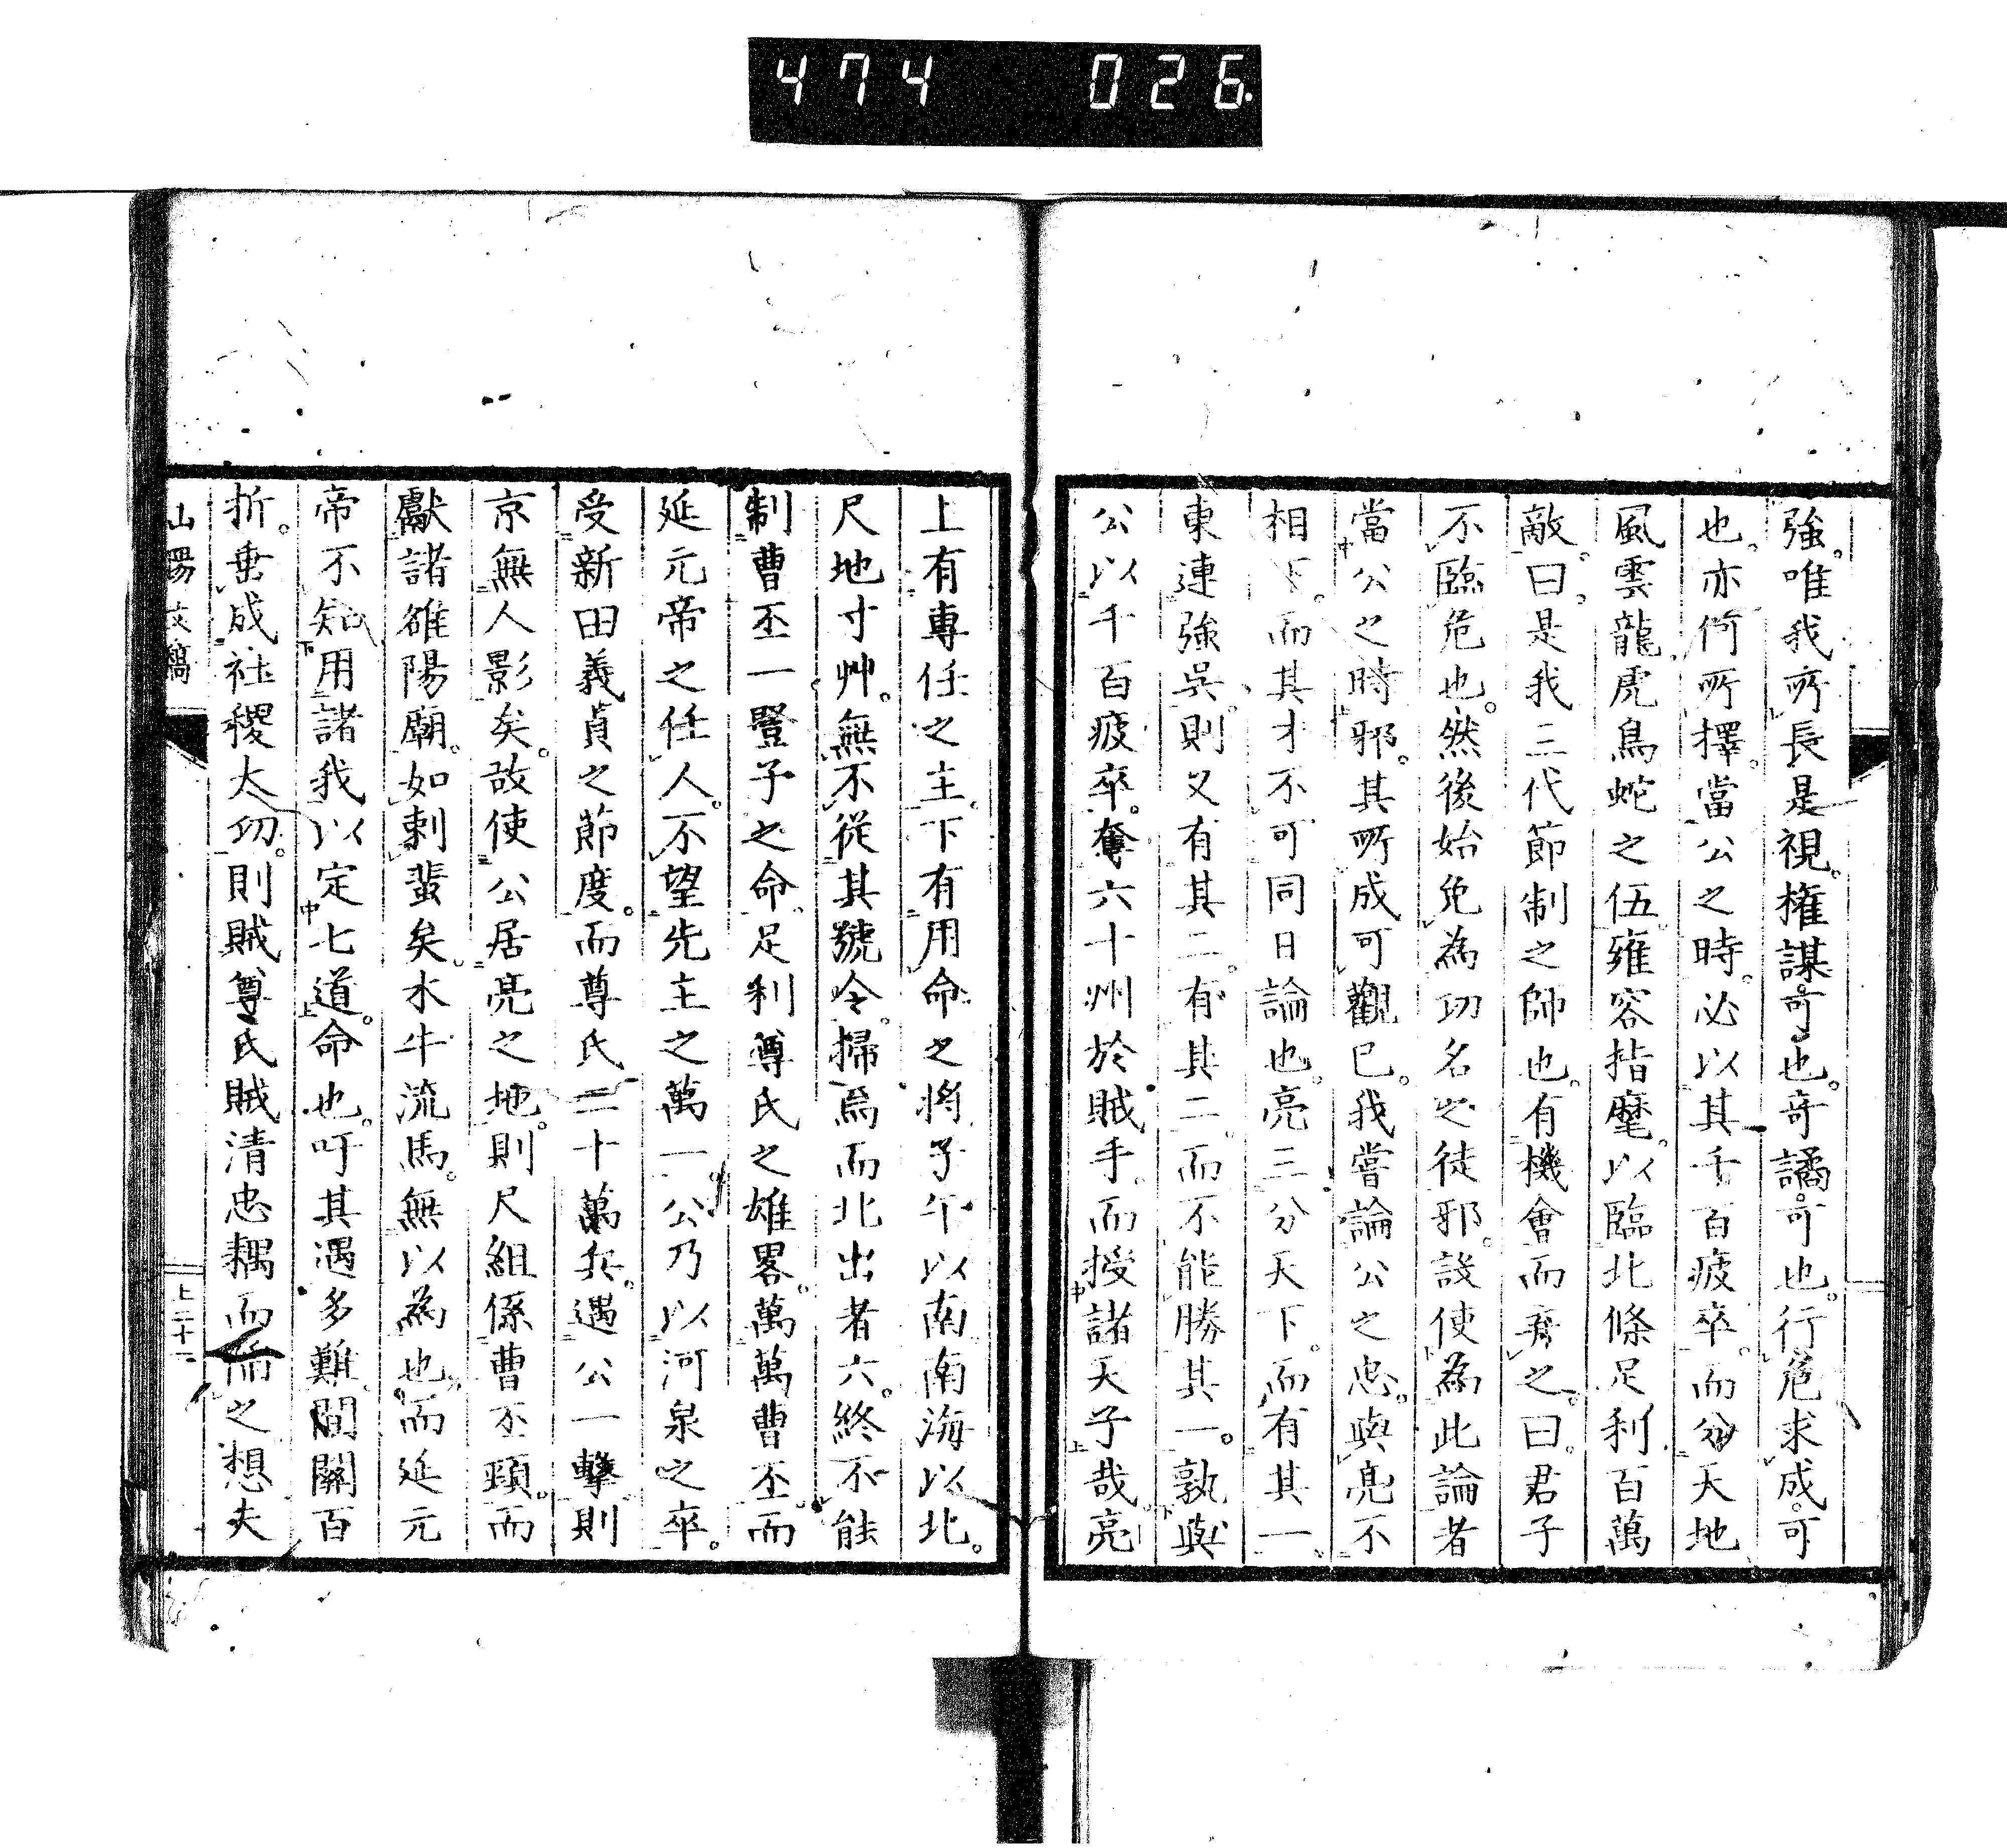 474 026.
強。唯我所長是視。權謀可也。奇譎可也。行危求成。可
也。亦何所擇。當公之時。必以其千百疲卒。而分天地
風雲龍虎鳥蛇之伍。雍容指麾。以臨北條足利百萬
敵。曰。是我三代節制之師也。有機會而棄之。曰。君子
不臨危也。然後始免為功名之徒邪。設使為此論者
當公之時邪。其所成可觀已。我嘗論公之忠。與亮不
相下。而其才不可同日論也。亮三分天下。而有其一。
東連強吳。則又有其二。有其二。而不能勝其一。孰與
公以千百疲卒。奪六十州於賊手。而授諸天子哉。亮
上有專任之主。下有用命之將。子午以南。南海以北。
尺地寸艸。無不從其號令。掃焉而北出者六。終不能
制曹丕一豎子之命。足利尊氏之雄畧。萬萬曹丕。而
延元帝之任人。不望先主之萬一。公乃以河泉之卒。
受新田義貞之節度。而尊氏二十萬兵。遇公一擊。則
京無人影矣。故使公居亮之地。則尺組係曹丕頸。而
獻諸雒陽廟。如刺蜚矣。木牛流馬。無以為也。而延元
帝不知用諸我以定七道。命也。吁其遇多難。間關百
折。垂成社稷大功。則賊尊氏賊清忠耦而而之想夫
山陽文稿
上二十一